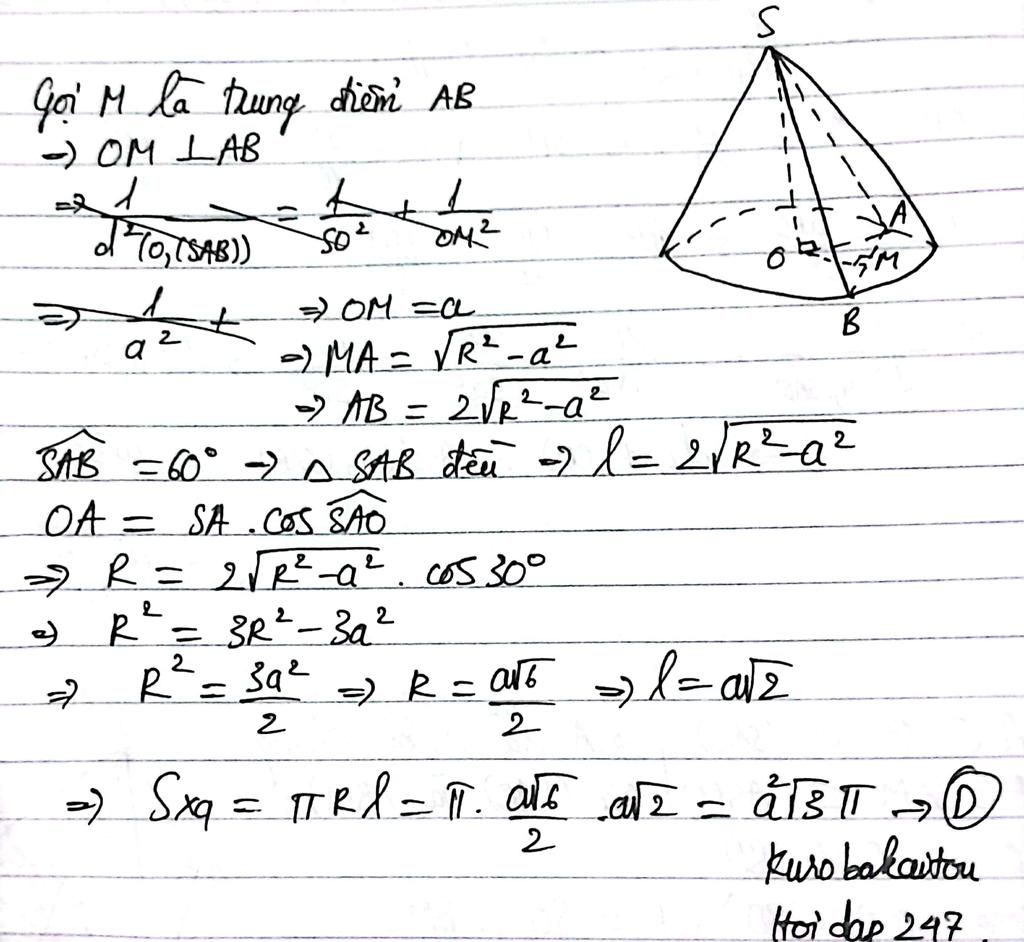 Gọi M là trung điểm AB
→ OM ⊥ AB
⇒ 1/d²(O,(SAB)) = 1/SO² + 1/OM²
⇒ 1/a² +
⇒ OM = a
⇒ MA = √(R² - a²)
→ AB = 2√(R² - a²)
SAB = 60° → △ SAB đều → l = 2√(R² - a²)
OA = SA . cos SAO
⇒ R = 2√(R² - a²) . cos 30°
⇒ R² = 3R² - 3a²
⇒ R² = 3a²/2 ⇒ R = a√6/2 ⇒ l = a√2
⇒ Sxq = πRl = π. a√6/2 .a√2 = a²√3 π → D
Kurobakaitou
Hoidap 247
S
A
O
M
B